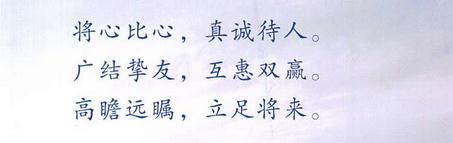 将心比心，真诚待人。
广结挚友，互惠双赢。
高瞻远瞩，立足将来。